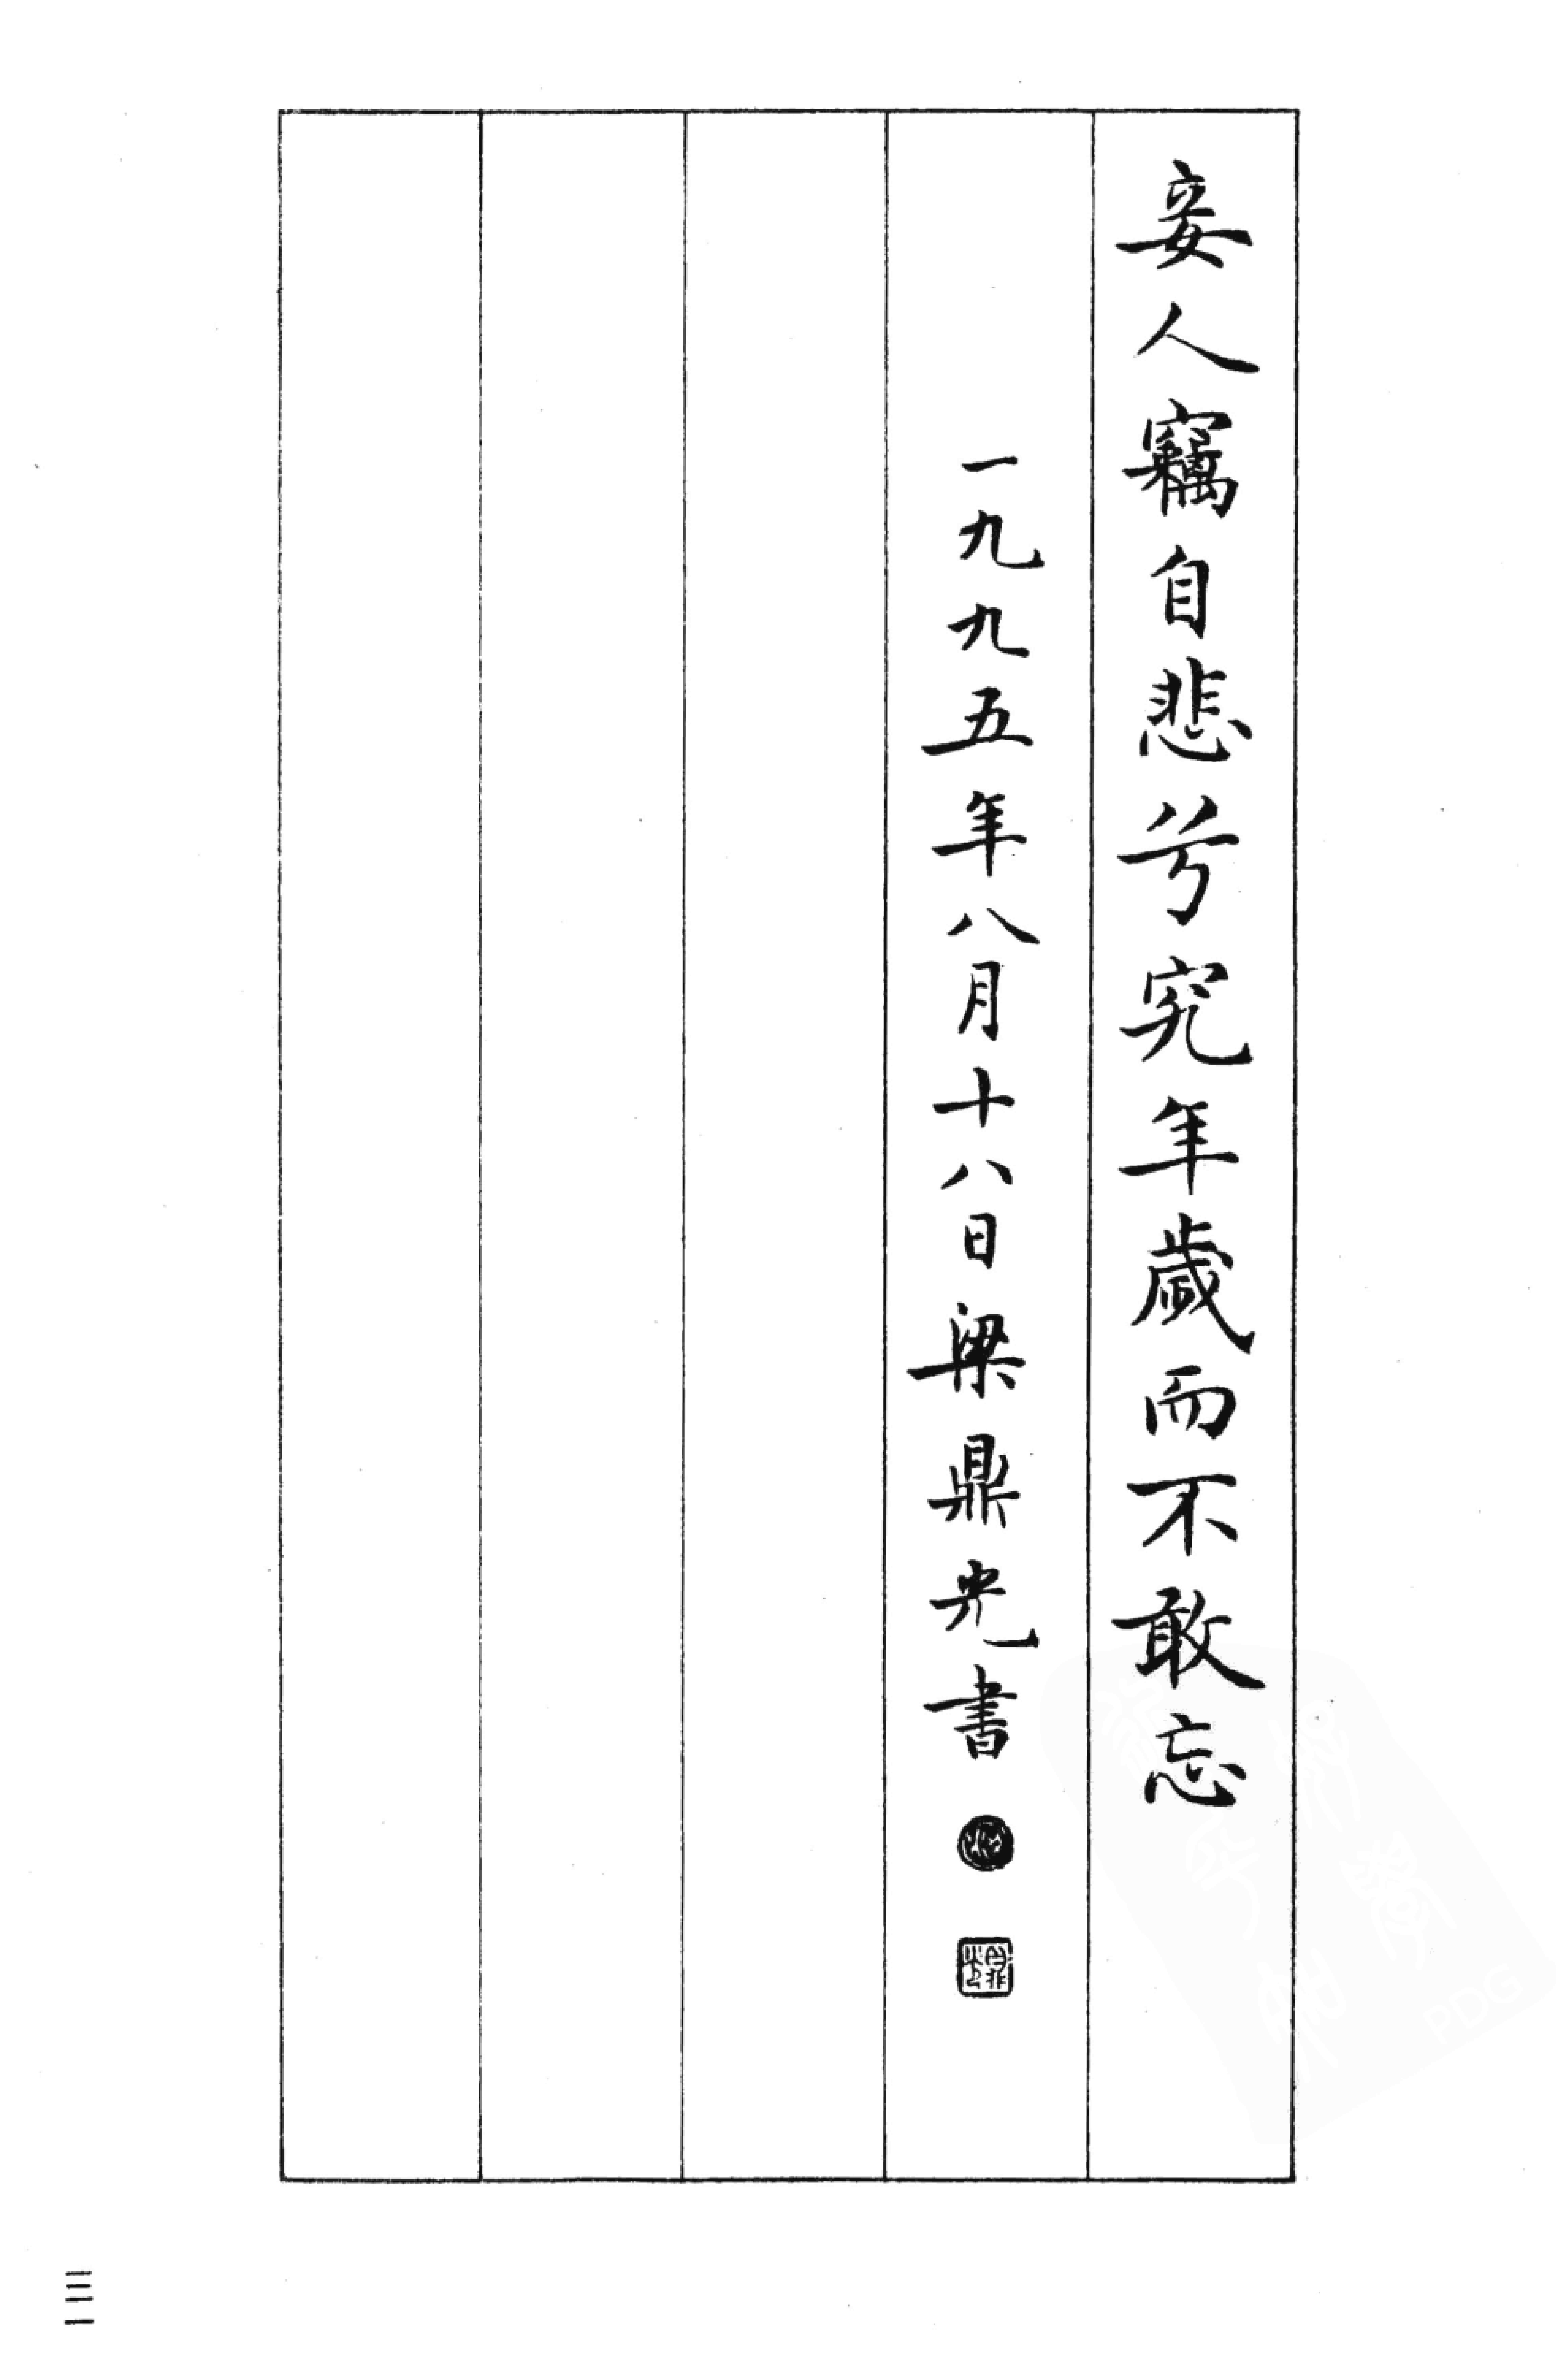 妾人竊自悲兮究年歲而不敢忘
一九九五年八月十八日梁鼎光書
三一
PDG